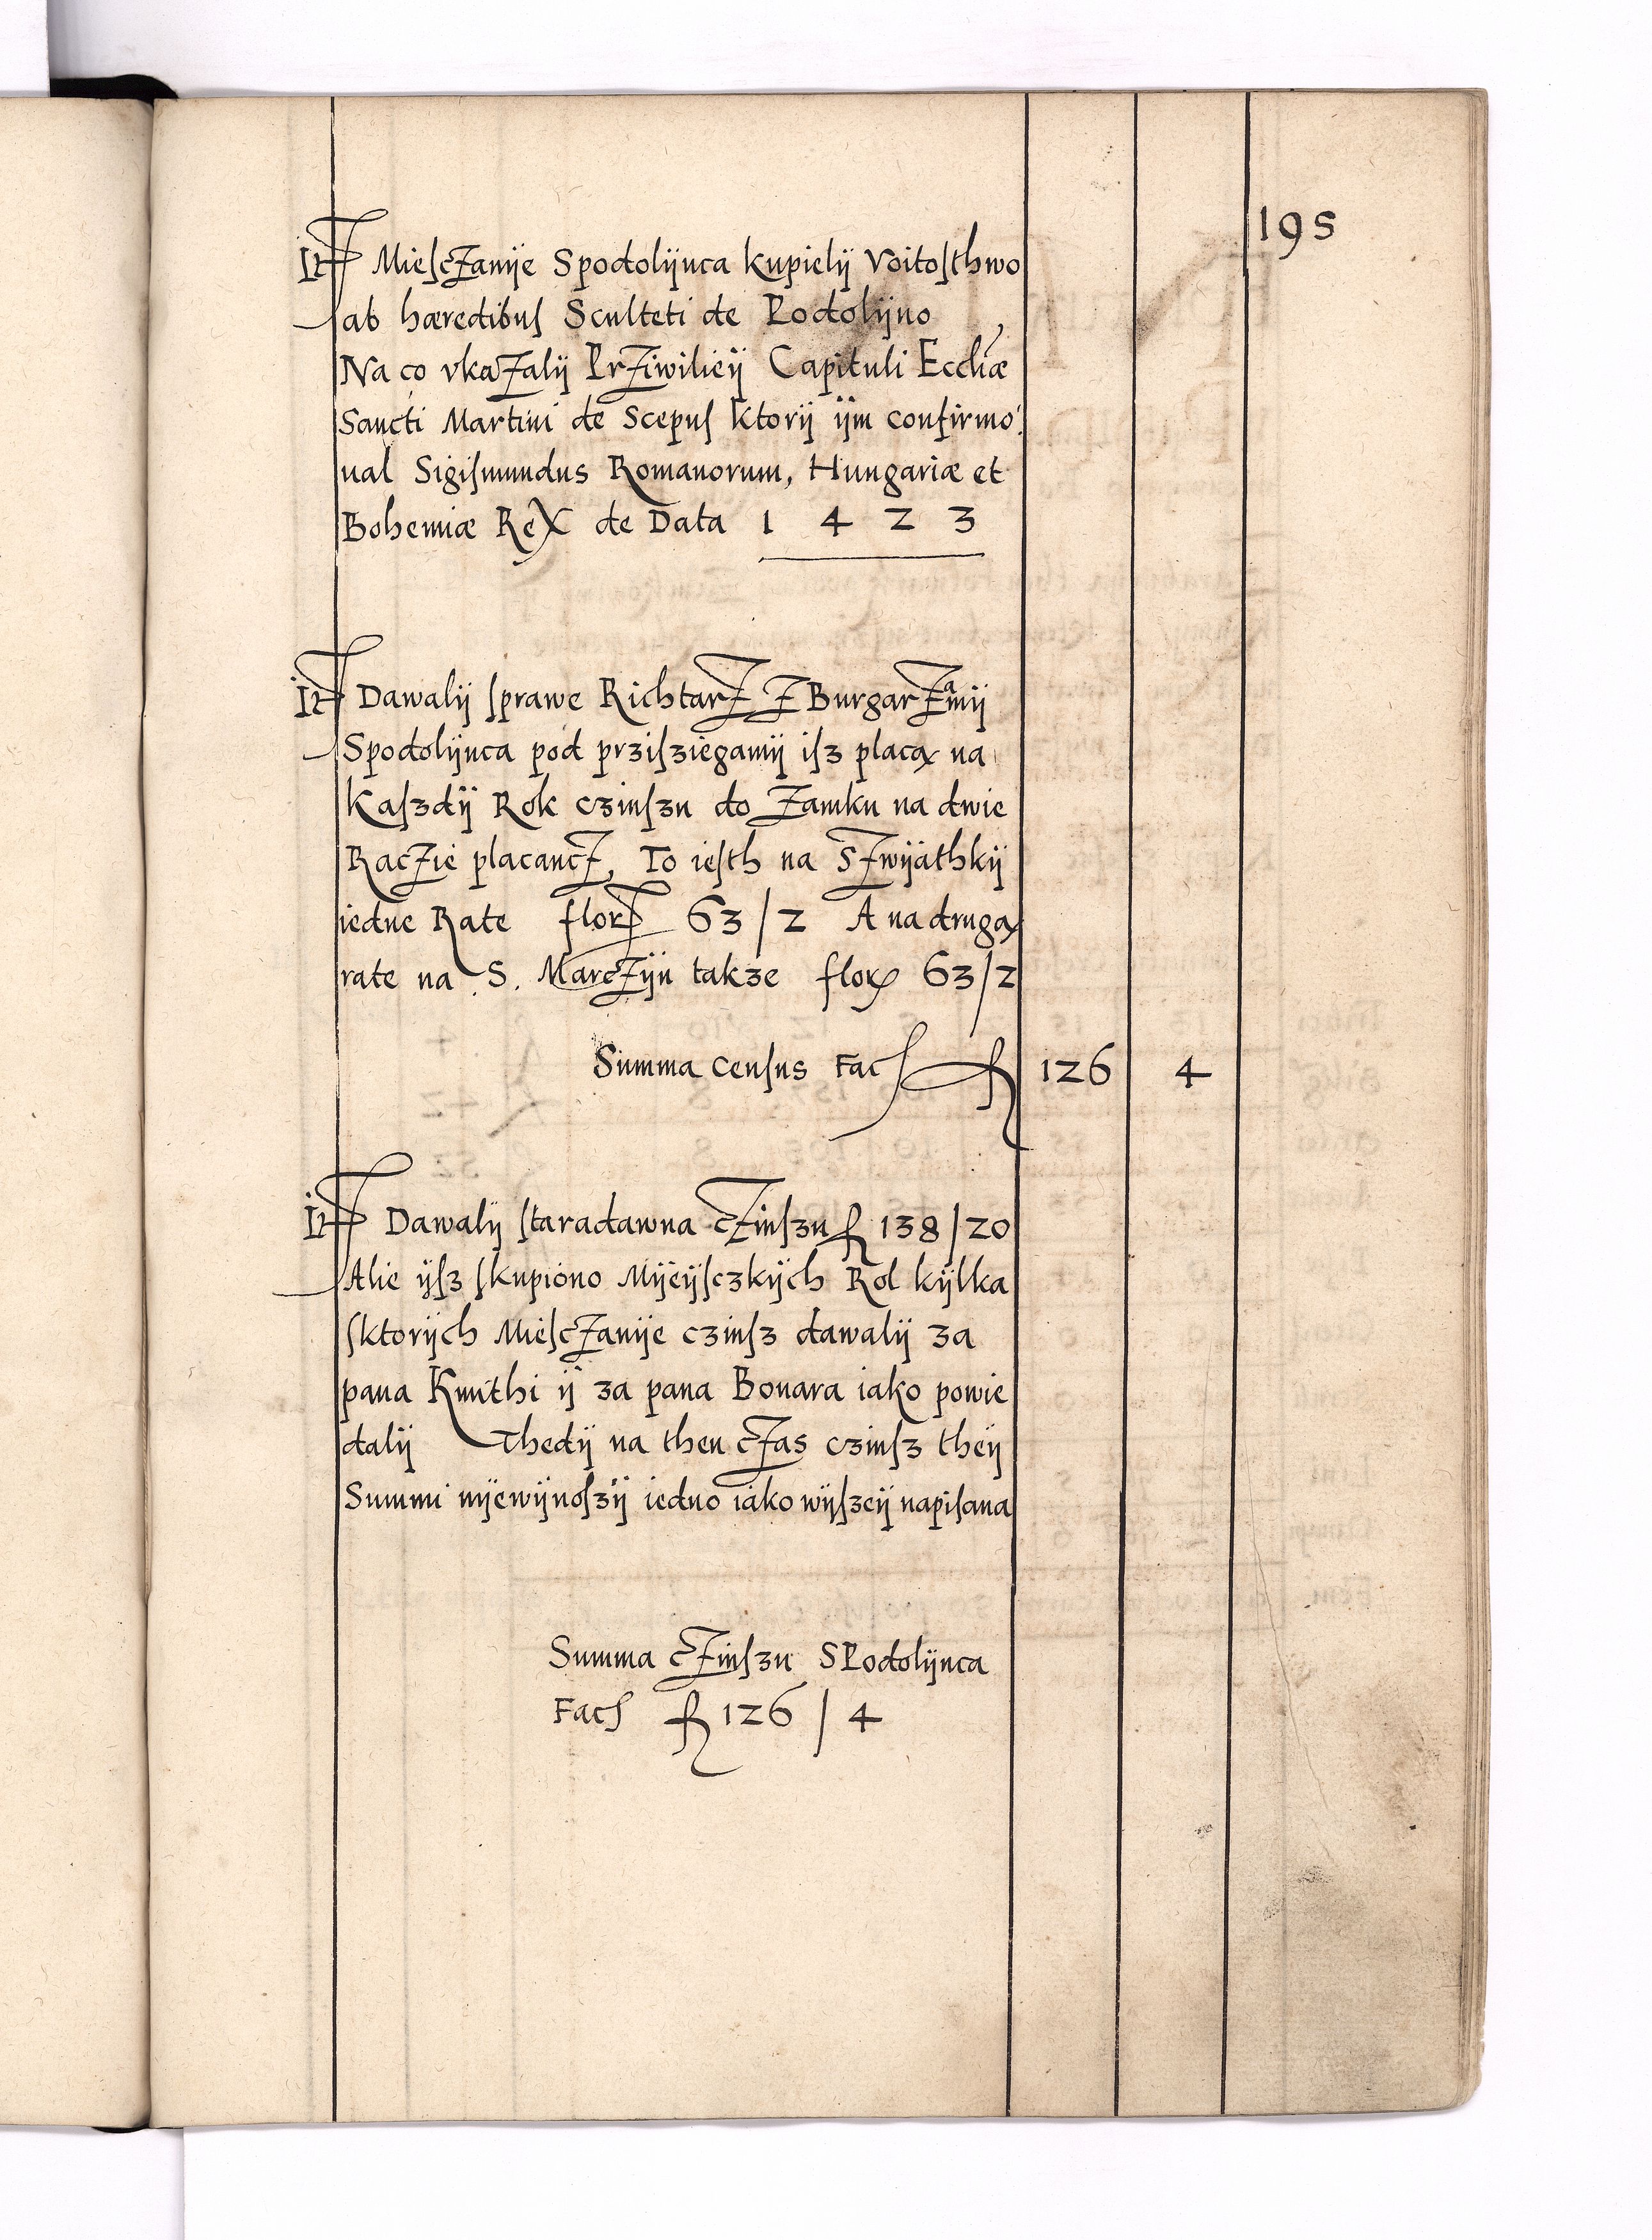 195
It Miesczanÿe Spodolÿnca kupielÿ Voitosthwo
ab hæredibus Sculteti de Podolÿno
Na co vkazalÿ Prziwilieÿ Capituli Eccliæ
Sancti Martini de Scepus ktorÿ ÿm confirmo
ual Sigismundus Romanorum, Hungariæ et
Bohemiæ Rex de Data 1 4 2 3
It Dawalÿ sprawe Richtarz z Burgarzamÿ
Spodolÿnca pod przisziegamÿ isz placą na
kaszdÿ Rok czinszu do zamku na dwie
Raczie placancz, To iesth na Szwÿathkÿ
iedne Rate flor 63/2 A na drugą
rate na S. Marczÿn takze flor 63/2
Summa Census Fac f 126 4
It Dawalÿ staradawna czinszu f 138/20
Alie ÿsz skupiono Mÿeÿsczkÿch Rol kÿlka
sktorÿch Miesczanÿe czinsz dawalÿ za
pana Kmithi ÿ za pana Bonara iako powie
dalÿ Thedÿ na then czas czinsz theÿ
Summi nÿewÿnoszÿ iedno iako wÿszeÿ napisana
Summa czinszu SPodolÿnca
Fac f 126 / 4